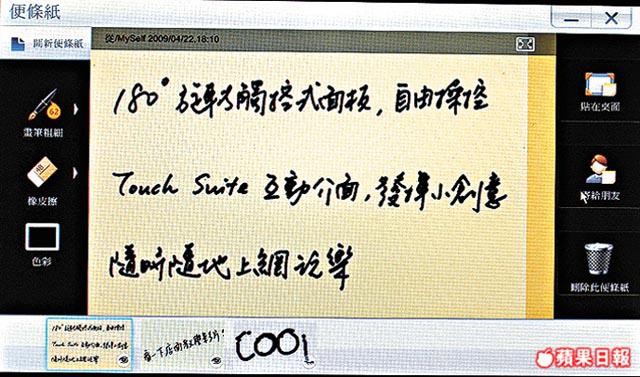 便條紙
開新便條紙
從/MySelf 2009/04/22,18:10
62
畫筆粗細
橡皮擦
色彩
180°旋轉觸控式面板,自由操控
Touch Suite 互動介面,發揮小創意
隨時隨地上網玩樂
貼在桌面
寄給朋友
刪除此便條紙
180°旋轉觸控式面板,自由操控
Touch Suite 互動介面,發揮小創意
隨時隨地上網玩樂
COOL
蘋果日報